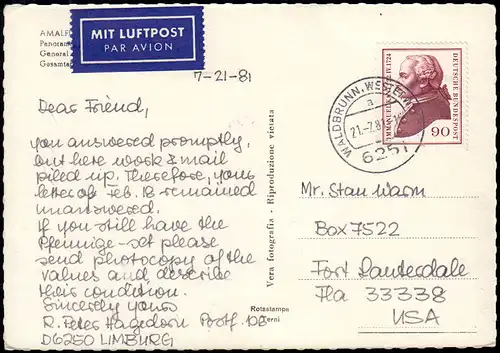 AMALF
Panoram
General
Gesamta
MIT LUFTPOST
PAR AVION
7-21-81
Dear Friend,
you answered promptly,
but here work & mail
piled up. Therefore, your
letter of Feb. 13 remained
unanswered.
If you still have the
Pfennige-set please
send photocopy of the
values and describe
their condition.
Sincerely yours
R. Peter Hagedorn Postf. 108
D6250 LIMBURG
Vera fotografia - Riproduzione vietata
Rotastampa
Terni
WALDBRUNN, WESTERW
a
21.-7.81
6251
IMMANUEL 1724
DEUTSCHE BUNDESPOST
90
Mr. Stan Warm
Box 7522
Fort Lauterdale
Fla 33338
USA